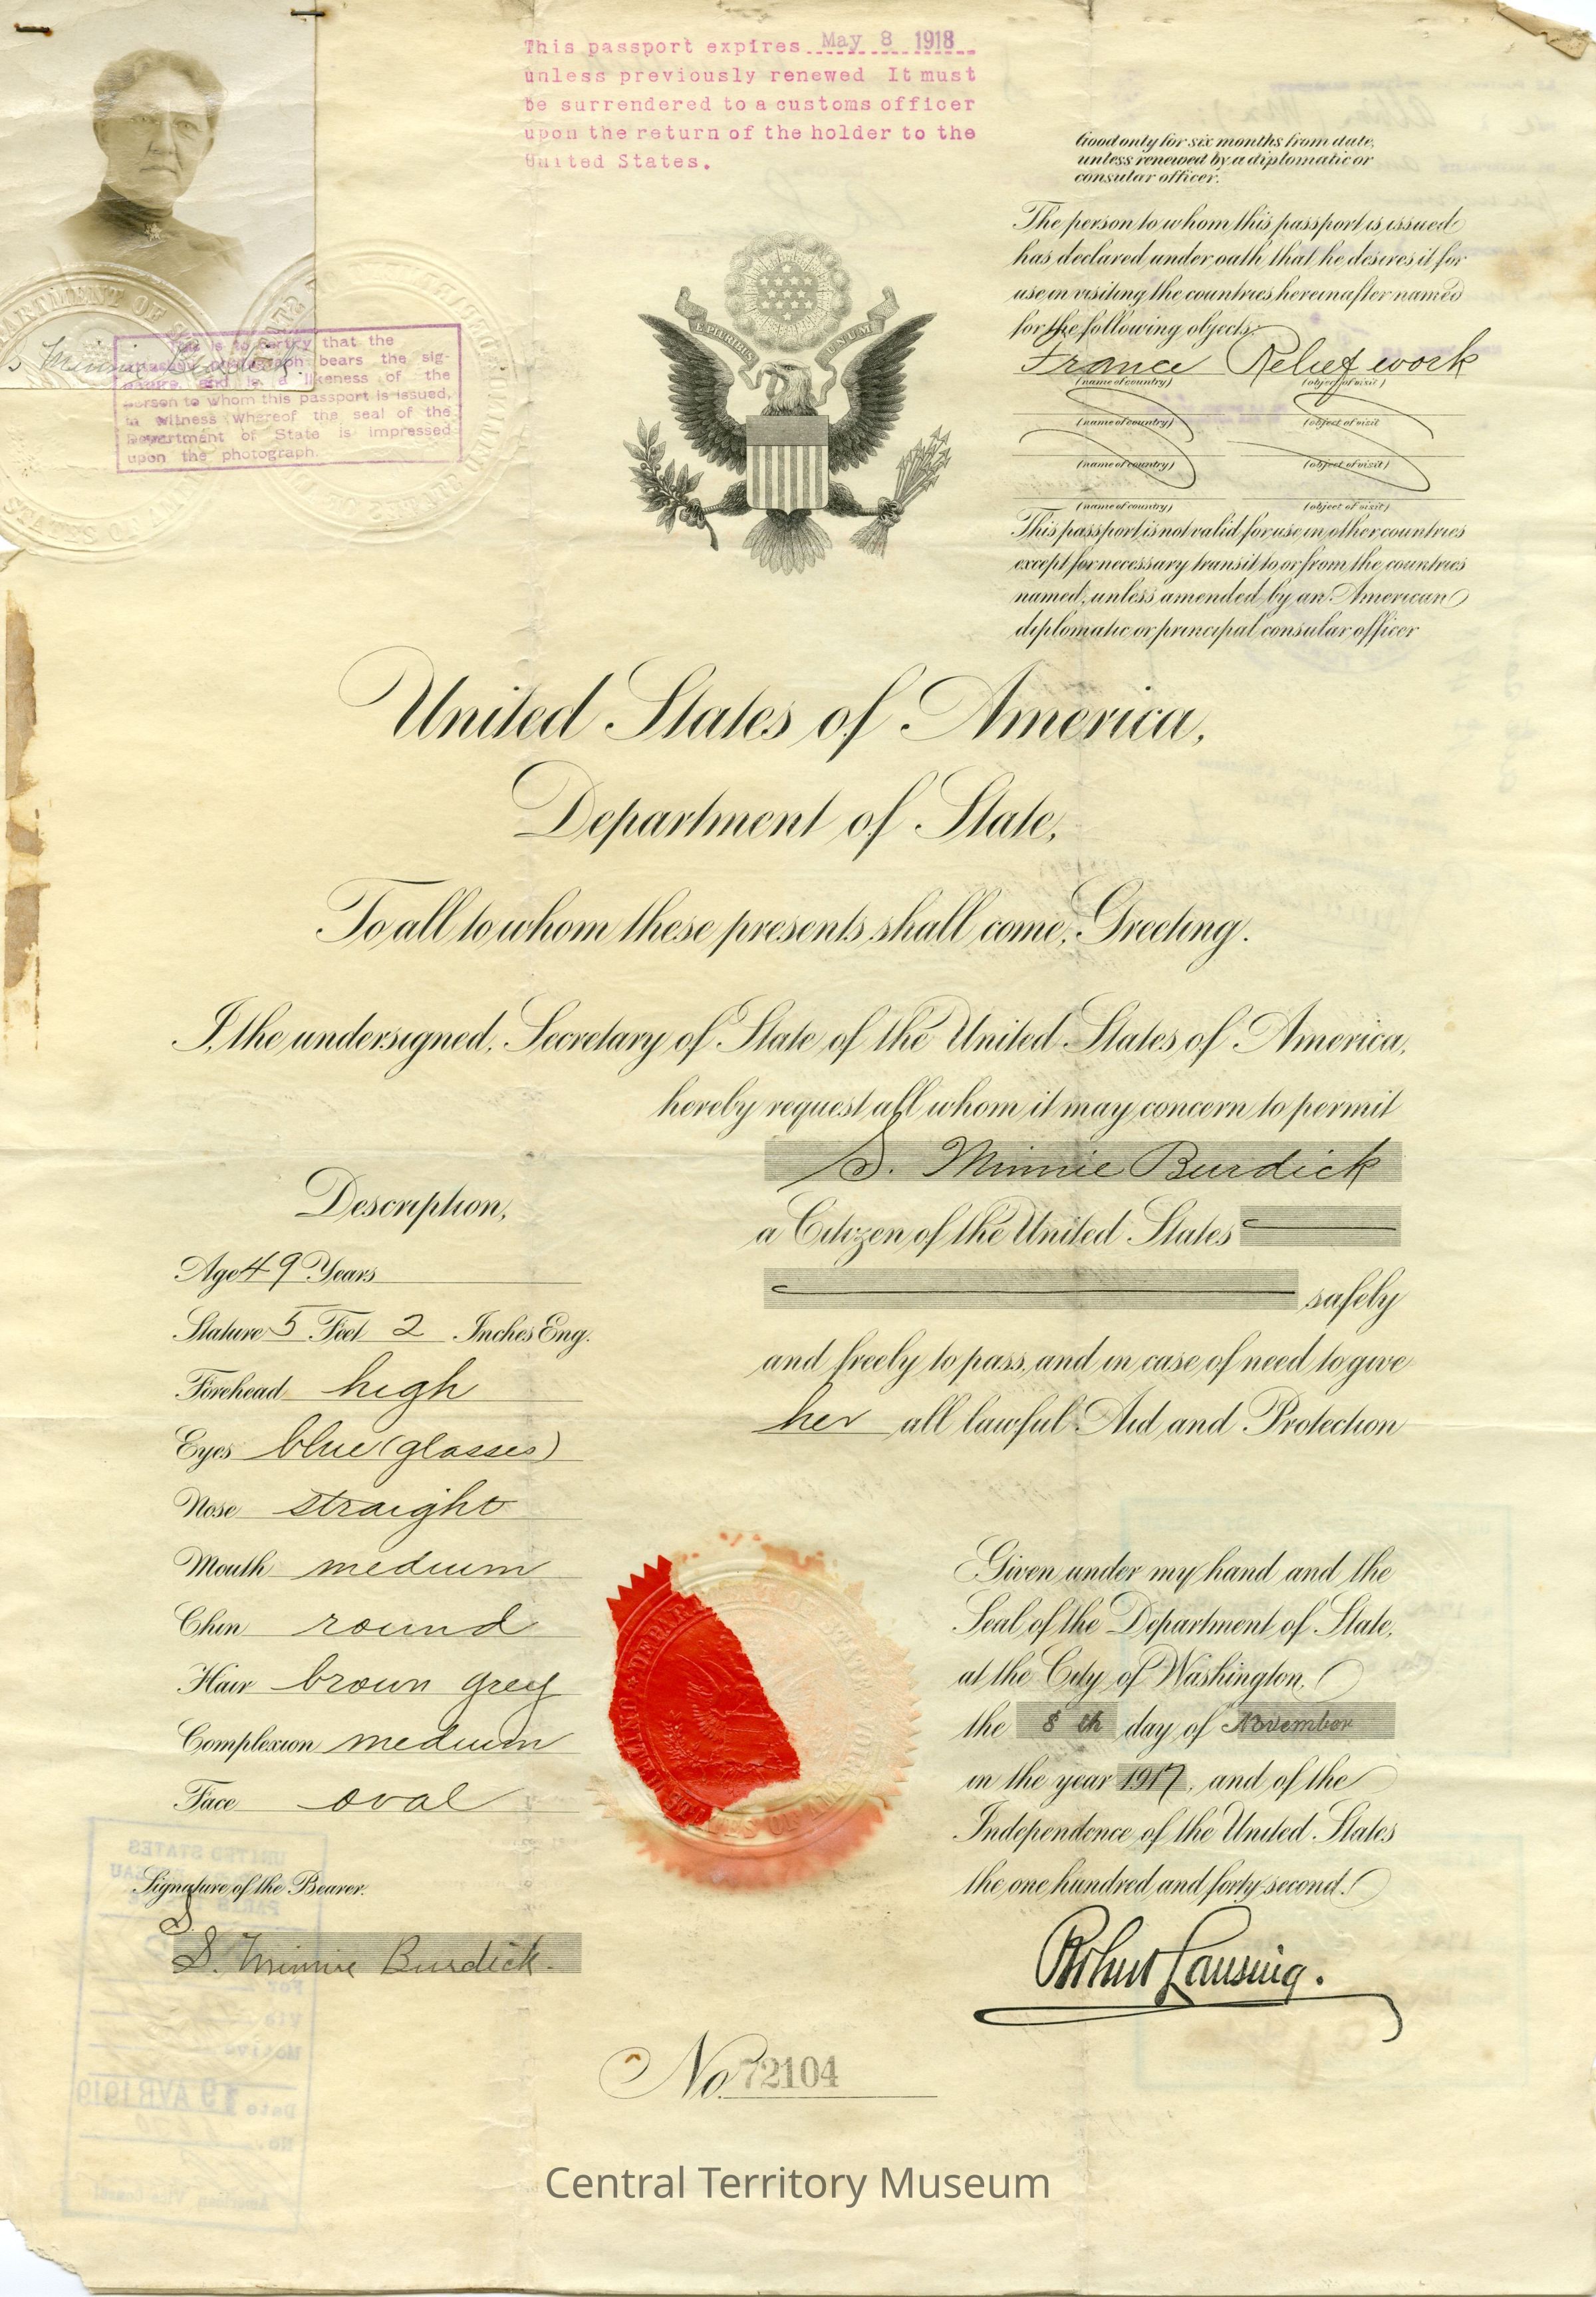 This passport expires May 8 1918
unless previously renewed It must
be surrendered to a customs officer
upon the return of the holder to the
United States.
Good only for six months from date,
unless renewed by a diplomatic or
consular officer.
The person to whom this passport is issued
has declared under oath that he desires it for
use in visiting the countries hereinafter named
for the following objects:
France Relief work
(name of country) (object of visit)
(name of country) (object of visit
(name of country) (object of visit)
(name of country) (object of visit)
This passport is not valid for use in other countries
except for necessary transit to or from the countries
named, unless amended by an American
diplomatic or principal consular officer
E PLURIBUS UNUM
Minnie Burdick
This is to certify that the
photograph bears the sig-
nature, and is a likeness of the
person to whom this passport is issued,
in witness whereof the seal of the
Department of State is impressed
upon the photograph.
United States of America,
Department of State,
To all to whom these presents shall come, Greeting.
I, the undersigned, Secretary of State of the United States of America,
hereby request all whom it may concern to permit
S. Minnie Burdick
a Citizen of the United States
safely
and freely to pass, and in case of need to give
her all lawful Aid and Protection
Description,
Age 49 Years
Stature 5 Feet 2 Inches Eng.
Forehead high
Eyes blue (glasses)
Nose straight
Mouth medium
Chin round
Hair brown grey
Complexion medium
Face oval
Signature of the Bearer.
S.
S. Minnie Burdick.
Given under my hand and the
Seal of the Department of State,
at the City of Washington,
the 8 th day of November
in the year 1917, and of the
Independence of the United States
the one hundred and forty-second.
Robert Lansing.
No. 72104
Central Territory Museum